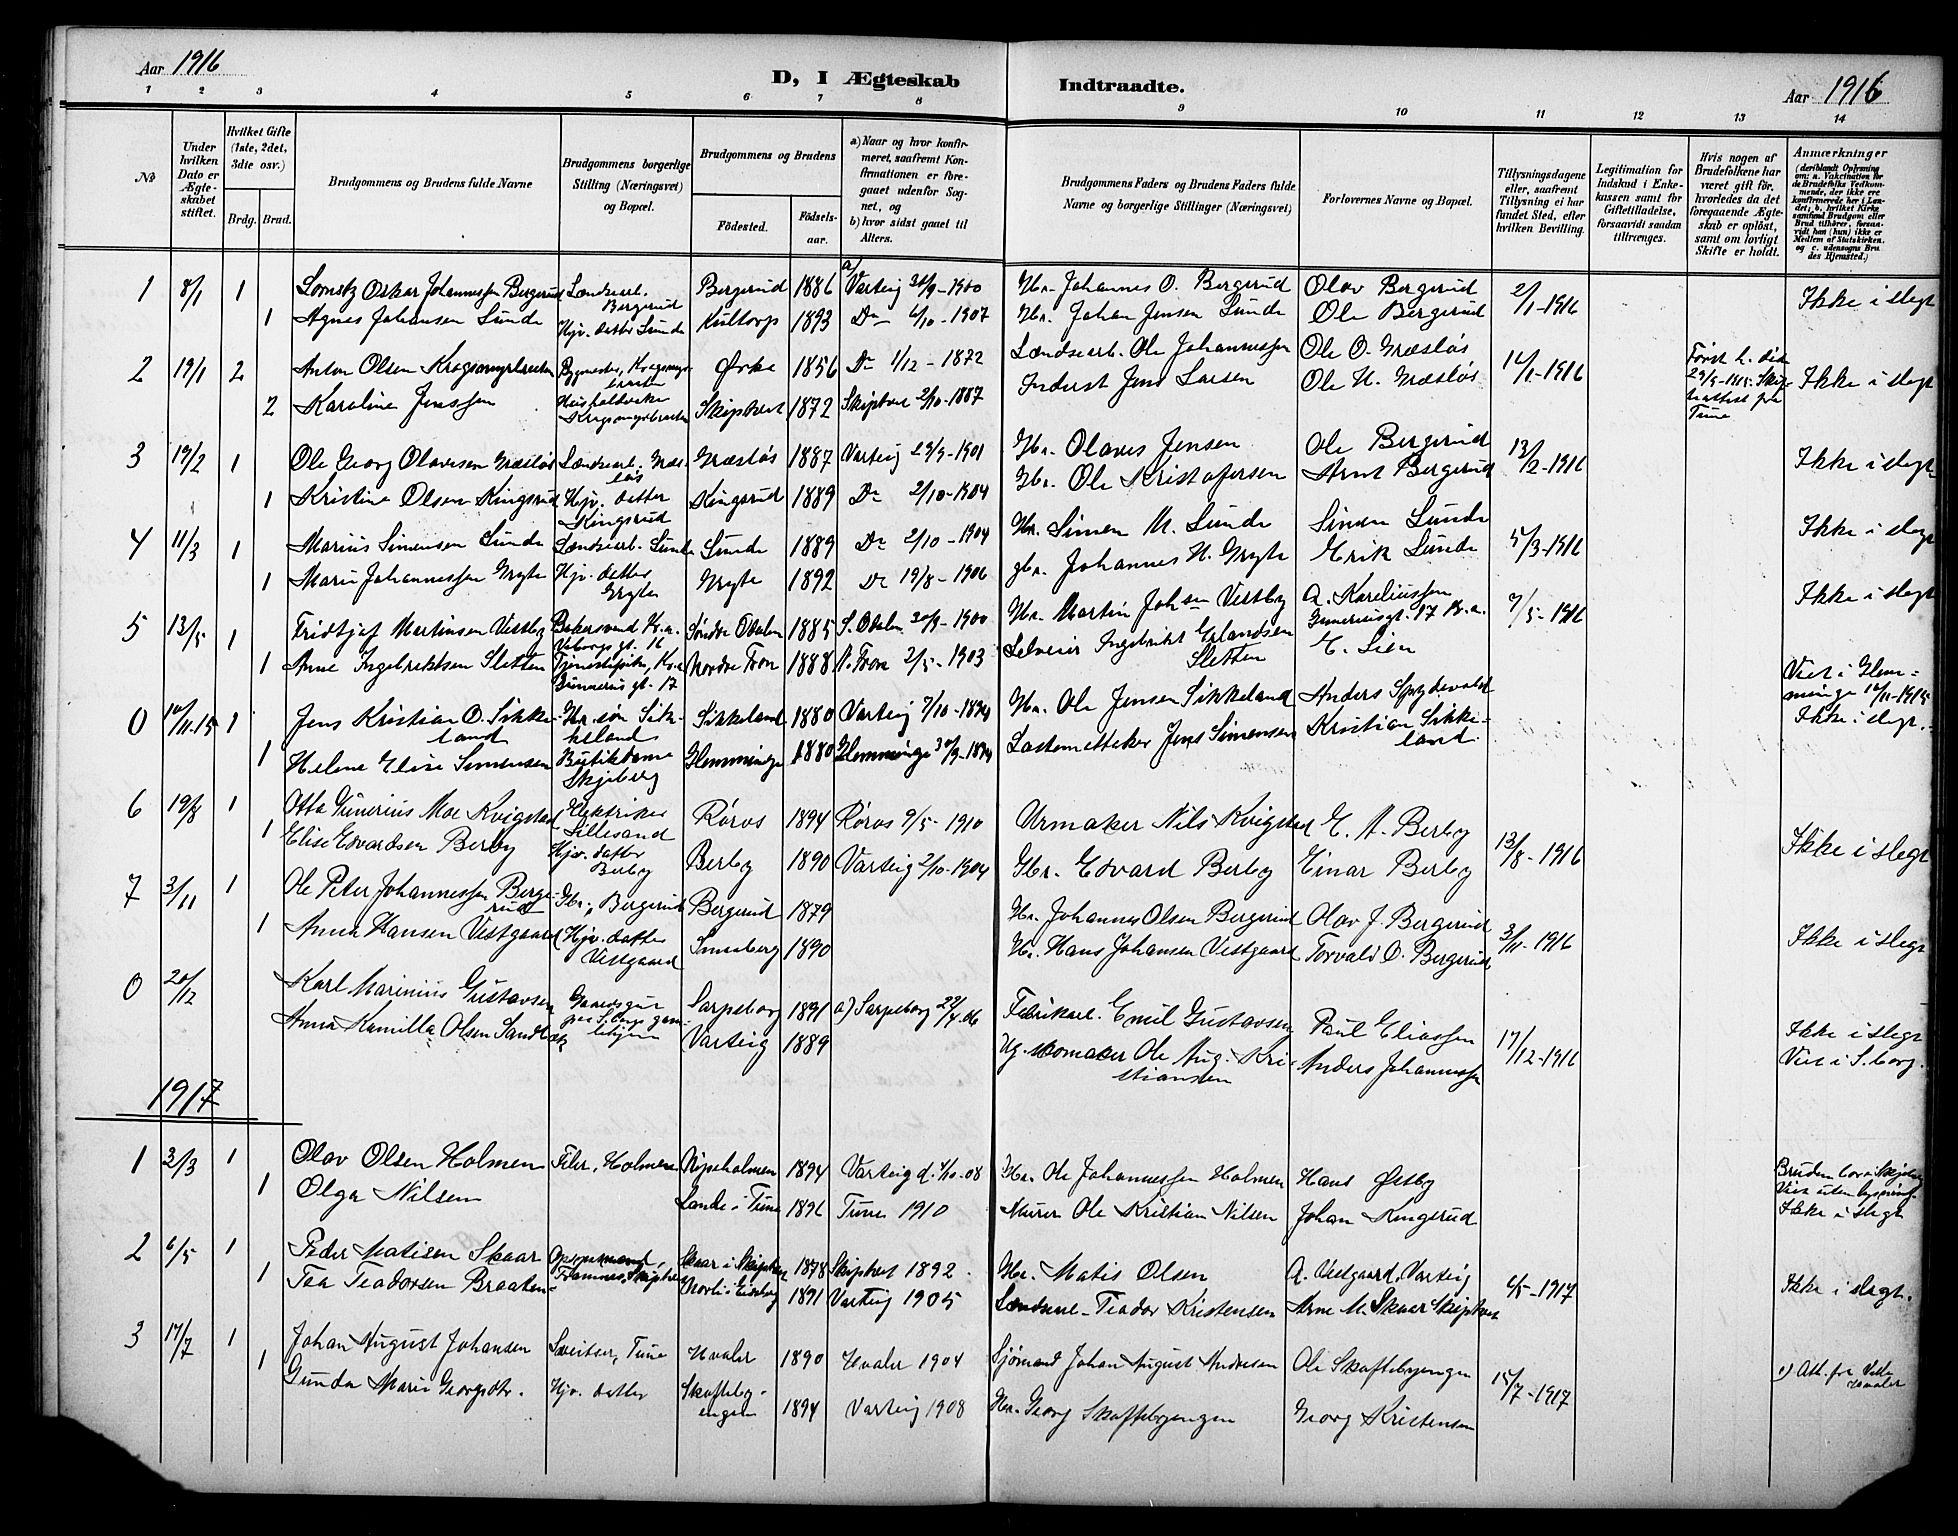 Aar 1916
D, I Ægteskab Indtraadte.
Aar 1916
1 2 3 4 5 6 7 8 9 10 11 12 13 14
No
Under hvilken Dato er Ægteskabet stiftet.
Hvilket Gifte (1ste, 2det, 3die osv.)
Brdg. Brud.
Brudgommens og Brudens fulde Navne
Brudgommens borgerlige Stilling (Næringsvei) og Bopæl.
Brudgommens og Brudens
Fødested. Fødselsaar.
a) Naar og hvor konfirmeret, saafremt Konfirmationen er foregaaet udenfor Sognet, og
b) hvor sidst gaaet til Alters.
Brudgommens Faders og Brudens Faders fulde Navne og borgerlige Stillinger (Næringsvei)
Forlovernes Navne og Bopæl.
Tillysningsdagene eller, saafremt Tillysning ei har fundet Sted, efter hvilken Bevilling.
Legitimation for Indskud i Enkekassen samt for Giftetilladelse, forsaavidt saadan tiltrænges.
Hvis nogen af Brudefolkene har været gift før, hvorledes da det foregaaende Ægteskab er opløst, samt om lovligt Skifte er holdt.
Anmærkninger
(deriblandt Oplysning om: a. Vakcination for de Brudefolks Vedkommende, der ikke ere konfirmerede her i Landet; b. hvilket Kirkesamfund Brudgom eller Brud tilhører, forsaavidt han (hun) ikke er Medlem af Statskirken. og c. udensogns Brudes Hjemsted.)
1 8/1 1 Oskar Johannessen Bergerud Landsarb. Bergerud Bergerud 1886 a) Varteig 30/9-1900 Gbr. Johannes O. Bergerud Olav Bergerud 2/1-1916 Ikke i slegt
1 Agnes Johansen Sunde Hjv. datter Sunde Kultorp 1893 Do 6/10-1907 Gbr. Johan Jensen Sunde Ole Bergerud
2 19/1 2 Anton Olsen Krogsmyrbraaten Ørke 1856 Do 1/12-1872 Landsarb. Ole Johannessen Ole O. Græsløs 14/1-1916 Ikke i slegt
2 Karoline Jenssen Skiptvet 1872 Skiptvet 2/10-1887 Inderst Jens Larsen Ole N. Græsløs
3 19/2 1 Ole Georg Olavesen Græsløs Landsarb. Græsløs Græsløs 1887 Varteig 29/9-1901 Gbr. Olaves Jensen Ole Bergerud 13/2-1916 Ikke i slegt
1 Kristine Olsen Kingsrud Hjv. datter Kingsrud Kingsrud 1889 Do 2/10-1904 Gbr. Ole Kristofersen Arnt Bergerud
4 11/3 1 Marius Simensen Sunde Landsarb. Sunde Sunde 1889 Do 2/10-1904 Gbr. Simen M. Sunde Simen Sunde 5/3-1916 Ikke i slegt
1 Marie Johannessen Gryte Hjv. datter Gryte Gryte 1892 Do 19/8-1906 gbr. Johannes N. Gryte Erik Sunde
5 13/5 1 Fridtjof Martinsen Vestby Bakersvend Kr.a. Søndre Odalen 1885 S. Odalen 30/9-1900 Gbr. Martin Johsen Vestby A. Kareliussen Gunneriusgt. 17 Kr.a. 7/5-1916 Ikke i slegt
1 Anne Ingebriktsen Sletten Tjenestepike, Kr.a Gunnerius gt. 17 Nordre Fron 1888 N. Fron 2/5-1903 Selveier Ingebrikt Erlandsen Sletten E. Lien
0 10/11-15 1 Jens Kristian O. Sikkeland Gbr. søn Sikkeland Sikkeland 1880 Varteig 7/10-1894 Gbr. Ole Jensen Sikkeland Anders Spydevold Viet i Glemminge 10/11-1915 Ikke i slegt.
1 Helene Elise Simensen Butikdame Skjeberg Glemminge 1880 Glemminge 30/9-1894 Jens Simensen Kristian Sikkeland
6 19/8 1 Otto Gunerius Moe Kvigstad Elektriker Lillesand Røros 1894 Røros 9/5-1910 Urmaker Nils Kvigstad E. A. Berby 13/8-1916 Ikke i slegt
1 Elise Edvardsen Berby Hjv. datter Berby Berby 1890 Varteig 2/10-1904 Gbr. Edvard Berby Einar Berby
7 3/11 1 Ole Peter Johannessen Bergerud Gbr., Bergerud Bergerud 1879 Gbr. Johannes Olsen Bergerud Olav J. Bergerud 3/11-1916 Ikke i slegt
1 Anna Hansen Vestgaard Hjv. datter Vestgaard Sneaberg 1890 Gbr. Hans Johansen Vestgaard Torvald O. Bergerud
0 20/12 Karl Marinius Gustavsen Sarpsborg 1891 a) Sarpsborg 22/4-06 Fabrikarb. Emil Gustavsen Paul Eliassen 17/12-1916 Ikke i slegt
Anna Kamilla Olsen Sandbæk Varteig 1889 Ug. skomaker Ole Aug. Kristiansen Anders Johannessen Viet i S.borg.
1917
1 3/3 1 Olav Olsen Holmen Holmen Nipeholmen 1894 Varteig d. 4/10-08 Gbr. Ole Johannessen Holmen Hans Østby Bruden bor i Skjeberg Viet uten lysning. Ikke i slegt
1 Olga Nilsen Lande i Tune 1896 Tune 1910 Murer Ole Kristian Nilsen Johan Kingsrud
2 6/5 1 Peder Matisen Skaar Skaar i Skiptvet 1878 Skiptvet 1892 Gbr. Matis Olsen A. Vestgaard, Varteig 6/5-1917 Ikke i slegt.
1 Tea Teadorsen Braaten 1891 Varteig 1905 Teador Kristensen Arne M. Skaar Skiptvet
3 17/7 1 Johan August Johansen Sveitser, Tune Hvaler 1890 Hvaler 1904 Sjømand Johan August Andresen Ole Skoftebyengen 15/7-1917
1 Gunda Marie Georgsdtr. Hjv. datter Skoftebyengen 1894 Varteig 1908 Gbr. Georg Skoftebyengen Georg Kristensen